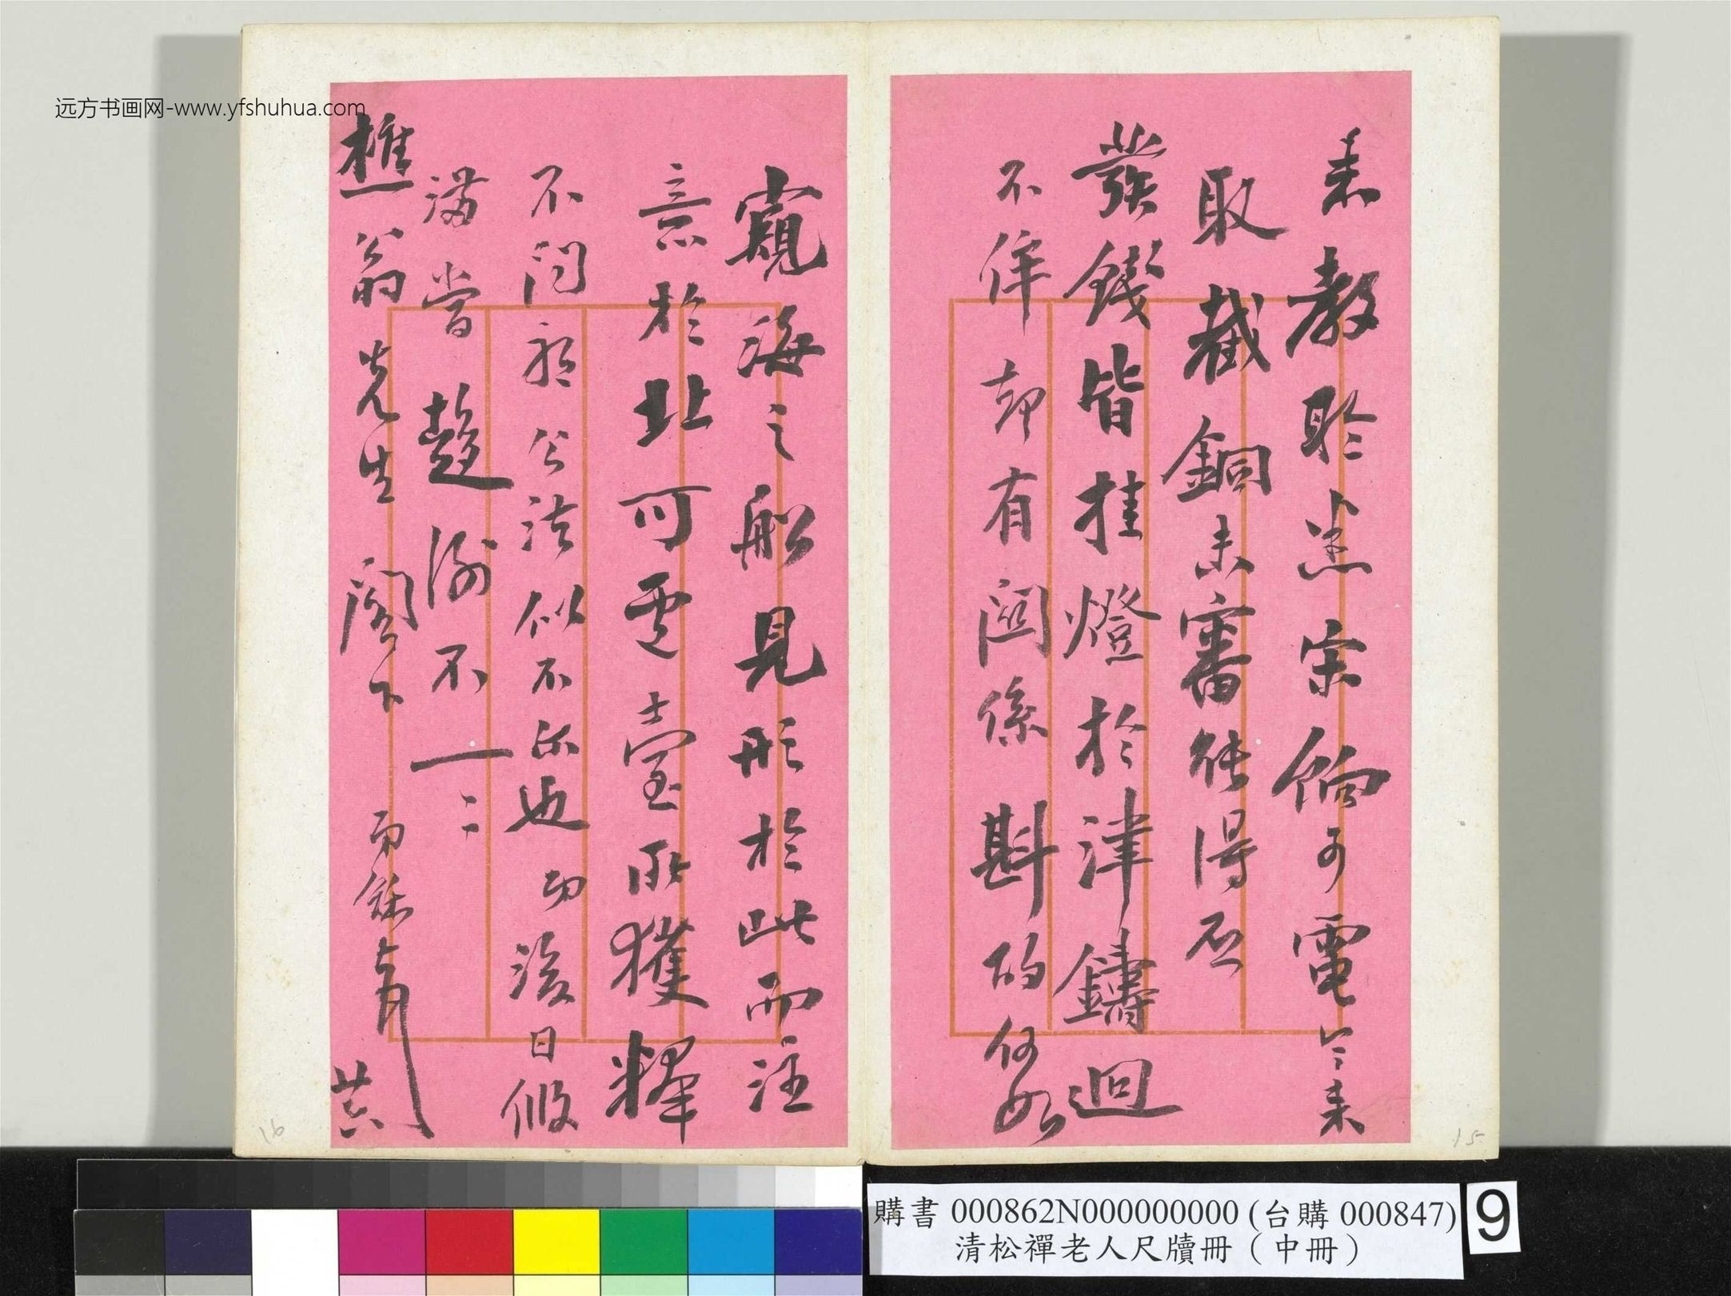 来教聆悉宋餉可電令来
取截銅未審能得否
發錢皆挂燈於津鑄迴
不佯却有関係斟酌何如
窺海之船見形於此而注
意於北可電臺所獲釋
不問
公法似不所也 后日
滿當趨謝不一二
樵翁先生閣下
远方书画网-www.yfshuhua.com
15
16
購書 000862N000000000 (台購 000847)
清松禪老人尺牘冊（中冊）
9